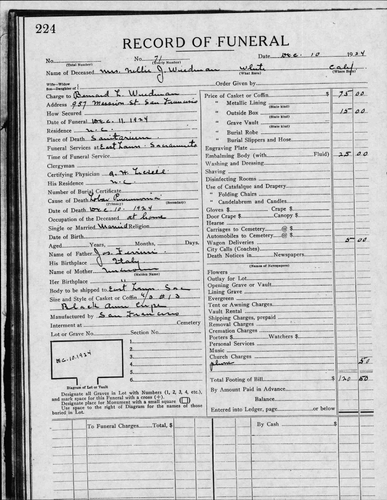 224
RECORD OF FUNERAL
No. 71 Date Dec. 10 1924
(Total Number) (Yearly Number)
Name of Deceased Mrs. Nellie J. Wiedman White Calif
(What Race) (Where Born)
Wife—Widow
Son—Daughter of Order Given by
Charge to Bernard L. Wiedman
Address 957 Mission St. San Francisco
How Secured
Date of Funeral Dec. 11, 1924
Residence N.C.
Place of Death Sanitarium
Funeral Services at East Lawn - Sacramento
Time of Funeral Service
Clergyman
Certifying Physician
His Residence N.C.
Number of Burial Certificate
Cause of Death Lobar Pneumonia
Date of Death Dec. 10, 1924
Occupation of the Deceased at home
Single or Married Married Religion
Date of Birth
Aged Years, Months, Days.
Name of Father Jos.
His Birthplace Italy
Name of Mother
(Maiden Name)
Her Birthplace "
Body to be shipped to East Lawn Sac
Size and Style of Casket or Coffin
Black
Manufactured by San Francisco
Interment at Cemetery
Lot or Grave No. Section No.
Dec. 10, 1924
1.
2.
3.
4.
5.
6.
Diagram of Lot or Vault
Designate all Graves in Lot with Numbers (1, 2, 3, 4, etc.),
and mark space for this Funeral with a cross (+).
Designate place for Monument with a small square
Use space to right of Diagram for the names of those
buried in Lot.
Price of Casket or Coffin $ 75 00
" Metallic Lining
(State Kind)
" Outside Box 15 00
(State Kind)
" Grave Vault
(State Kind)
" Burial Robe
(State Kind)
" Burial Slippers and Hose
Engraving Plate
Embalming Body (with Fluid) 25 00
Washing and Dressing
Shaving
Disinfecting Rooms
Use of Catafalque and Drapery
" Folding Chairs
" Candelabrum and Candles
Gloves $ Crape $
Door Crape $ Canopy $
Hearse
Carriages to Cemetery @ $
Automobiles to Cemetery @ $
Wagon Deliveries 5 00
City Calls (Coaches)
Death Notices in Newspapers
(Names of Newspapers)
Flowers
Outlay for Lot
Opening Grave or Vault
Lining Grave
Evergreen
Tent or Awning Charges
Vault Rental
Shipping Charges, prepaid
Removal Charges
Cremation Charges
Porters $ Watchers $
Personal Services
Music
Church Charges
phone 50
Total Footing of Bill $ 120 50
By Amount Paid in Advance
Balance
Entered into Ledger, page or below
To Funeral Charges, $ By Cash $